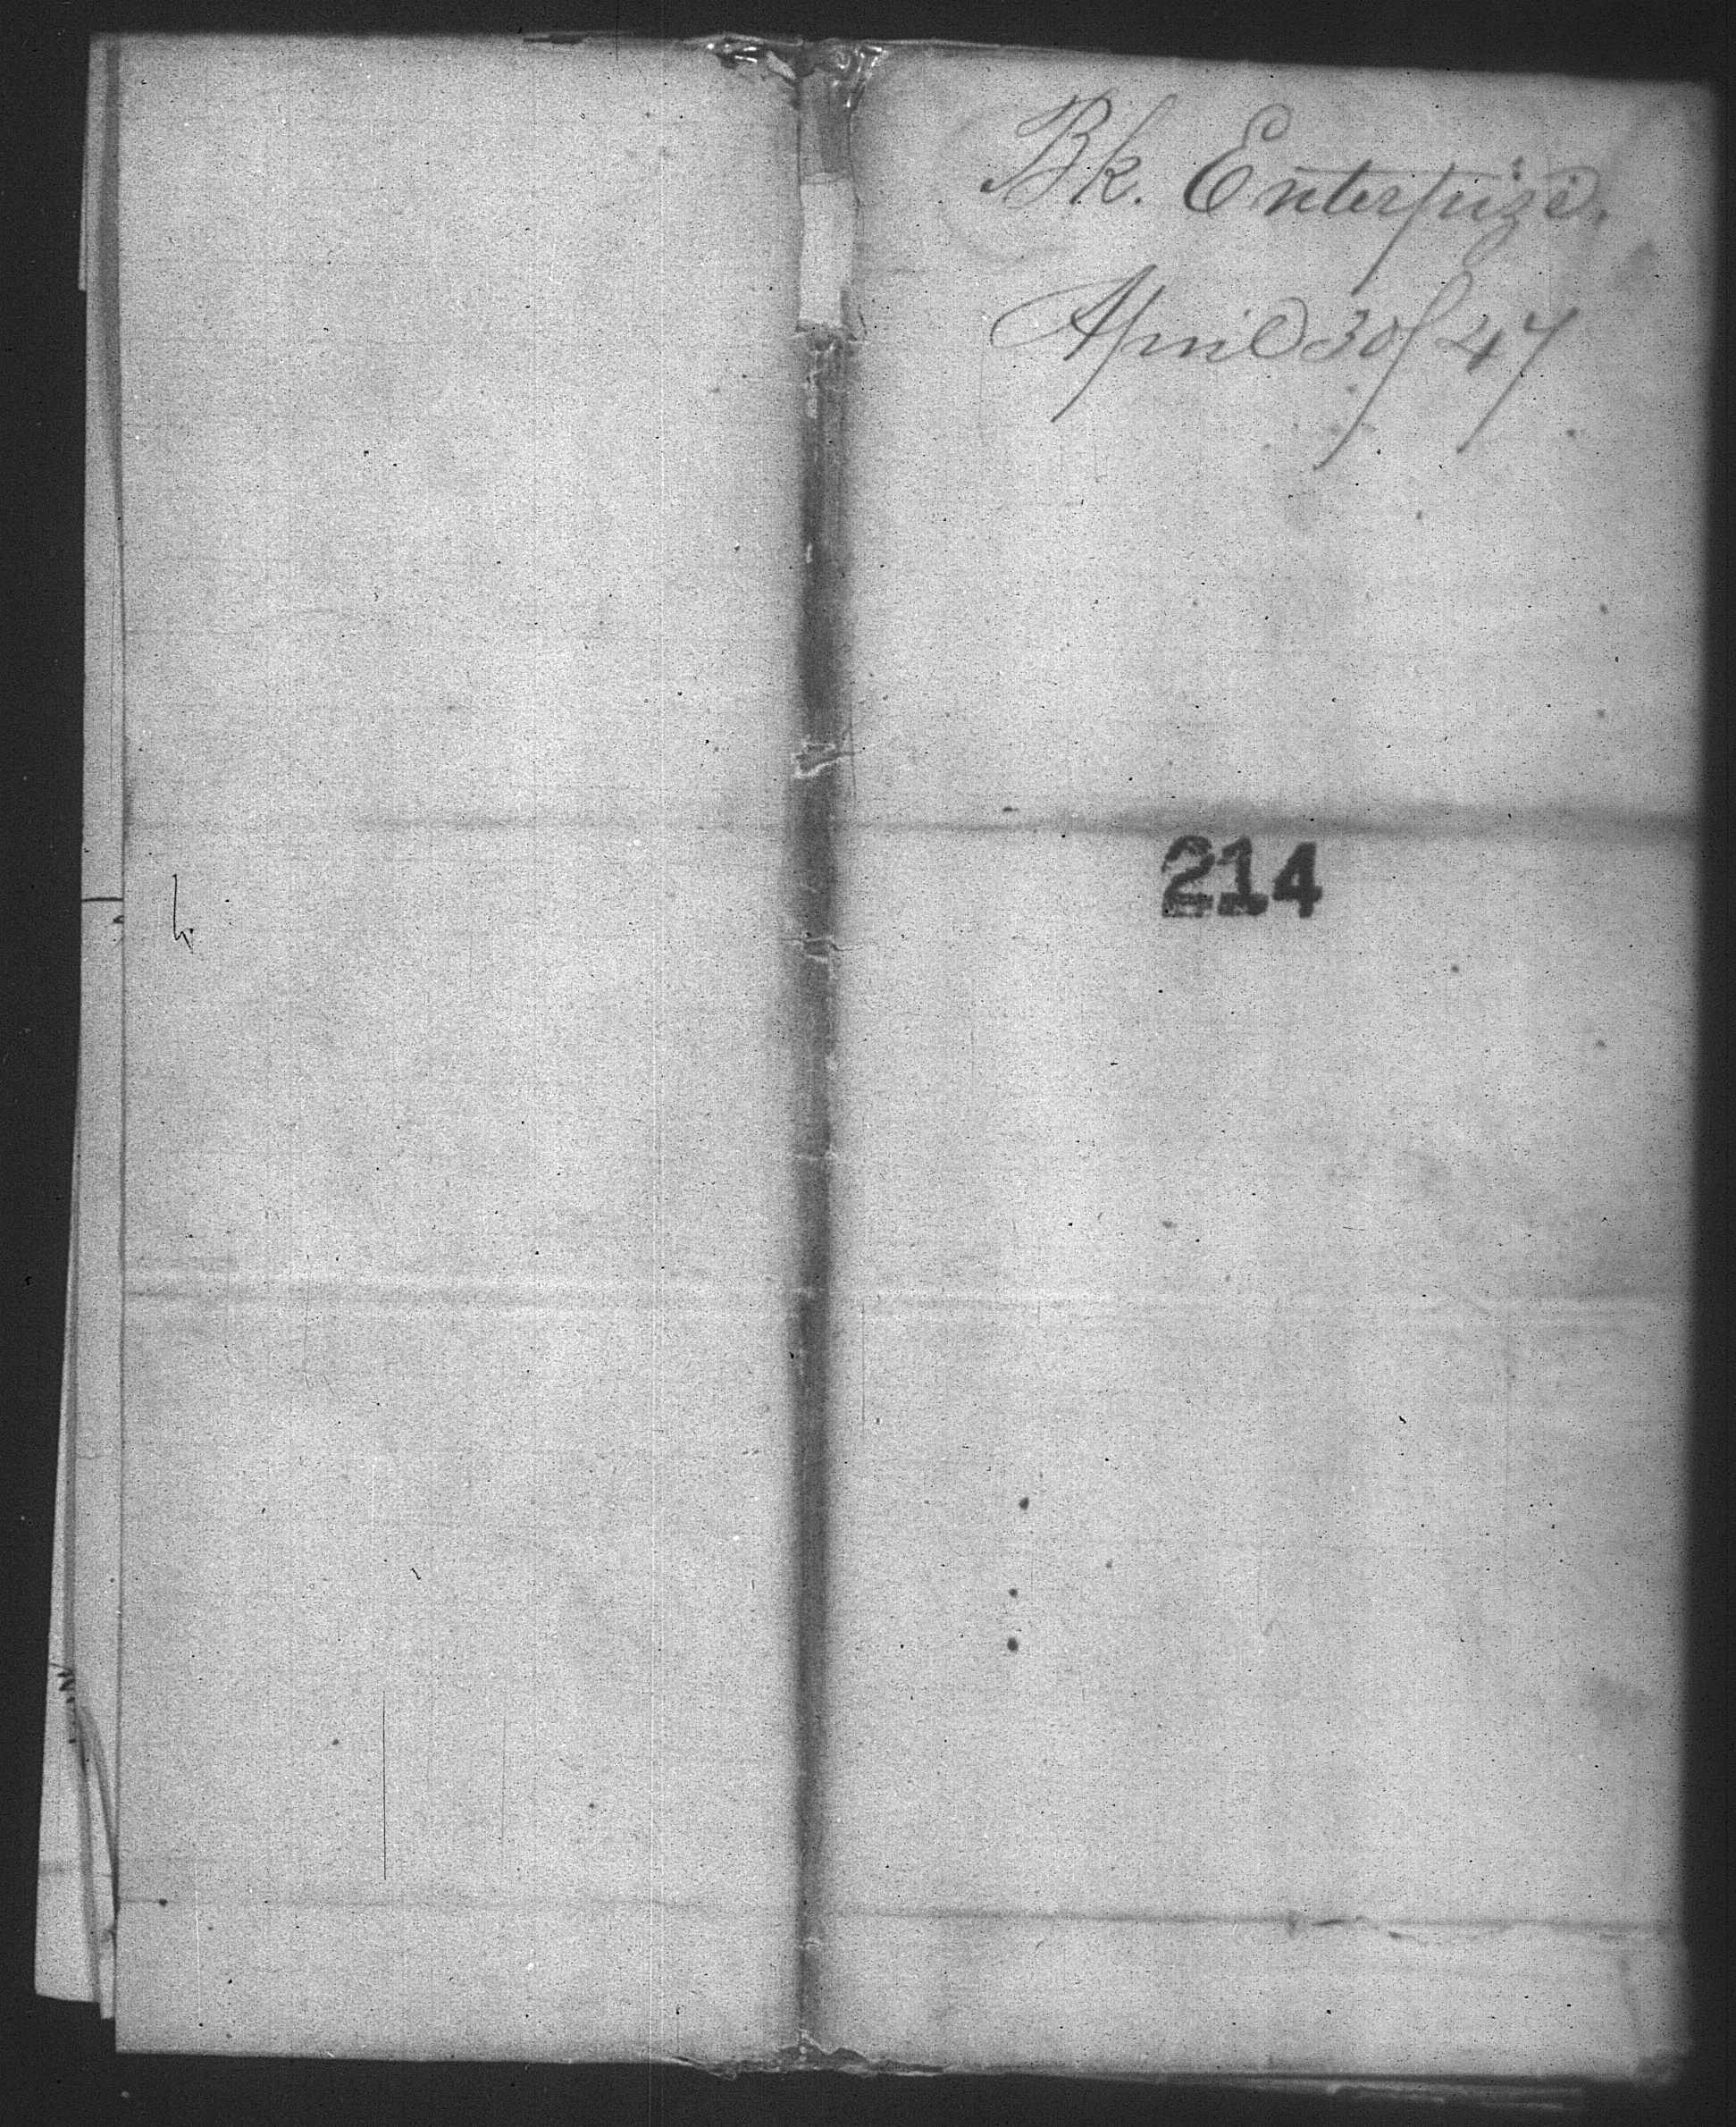 Bk. Enterprize.
April 30/47
214